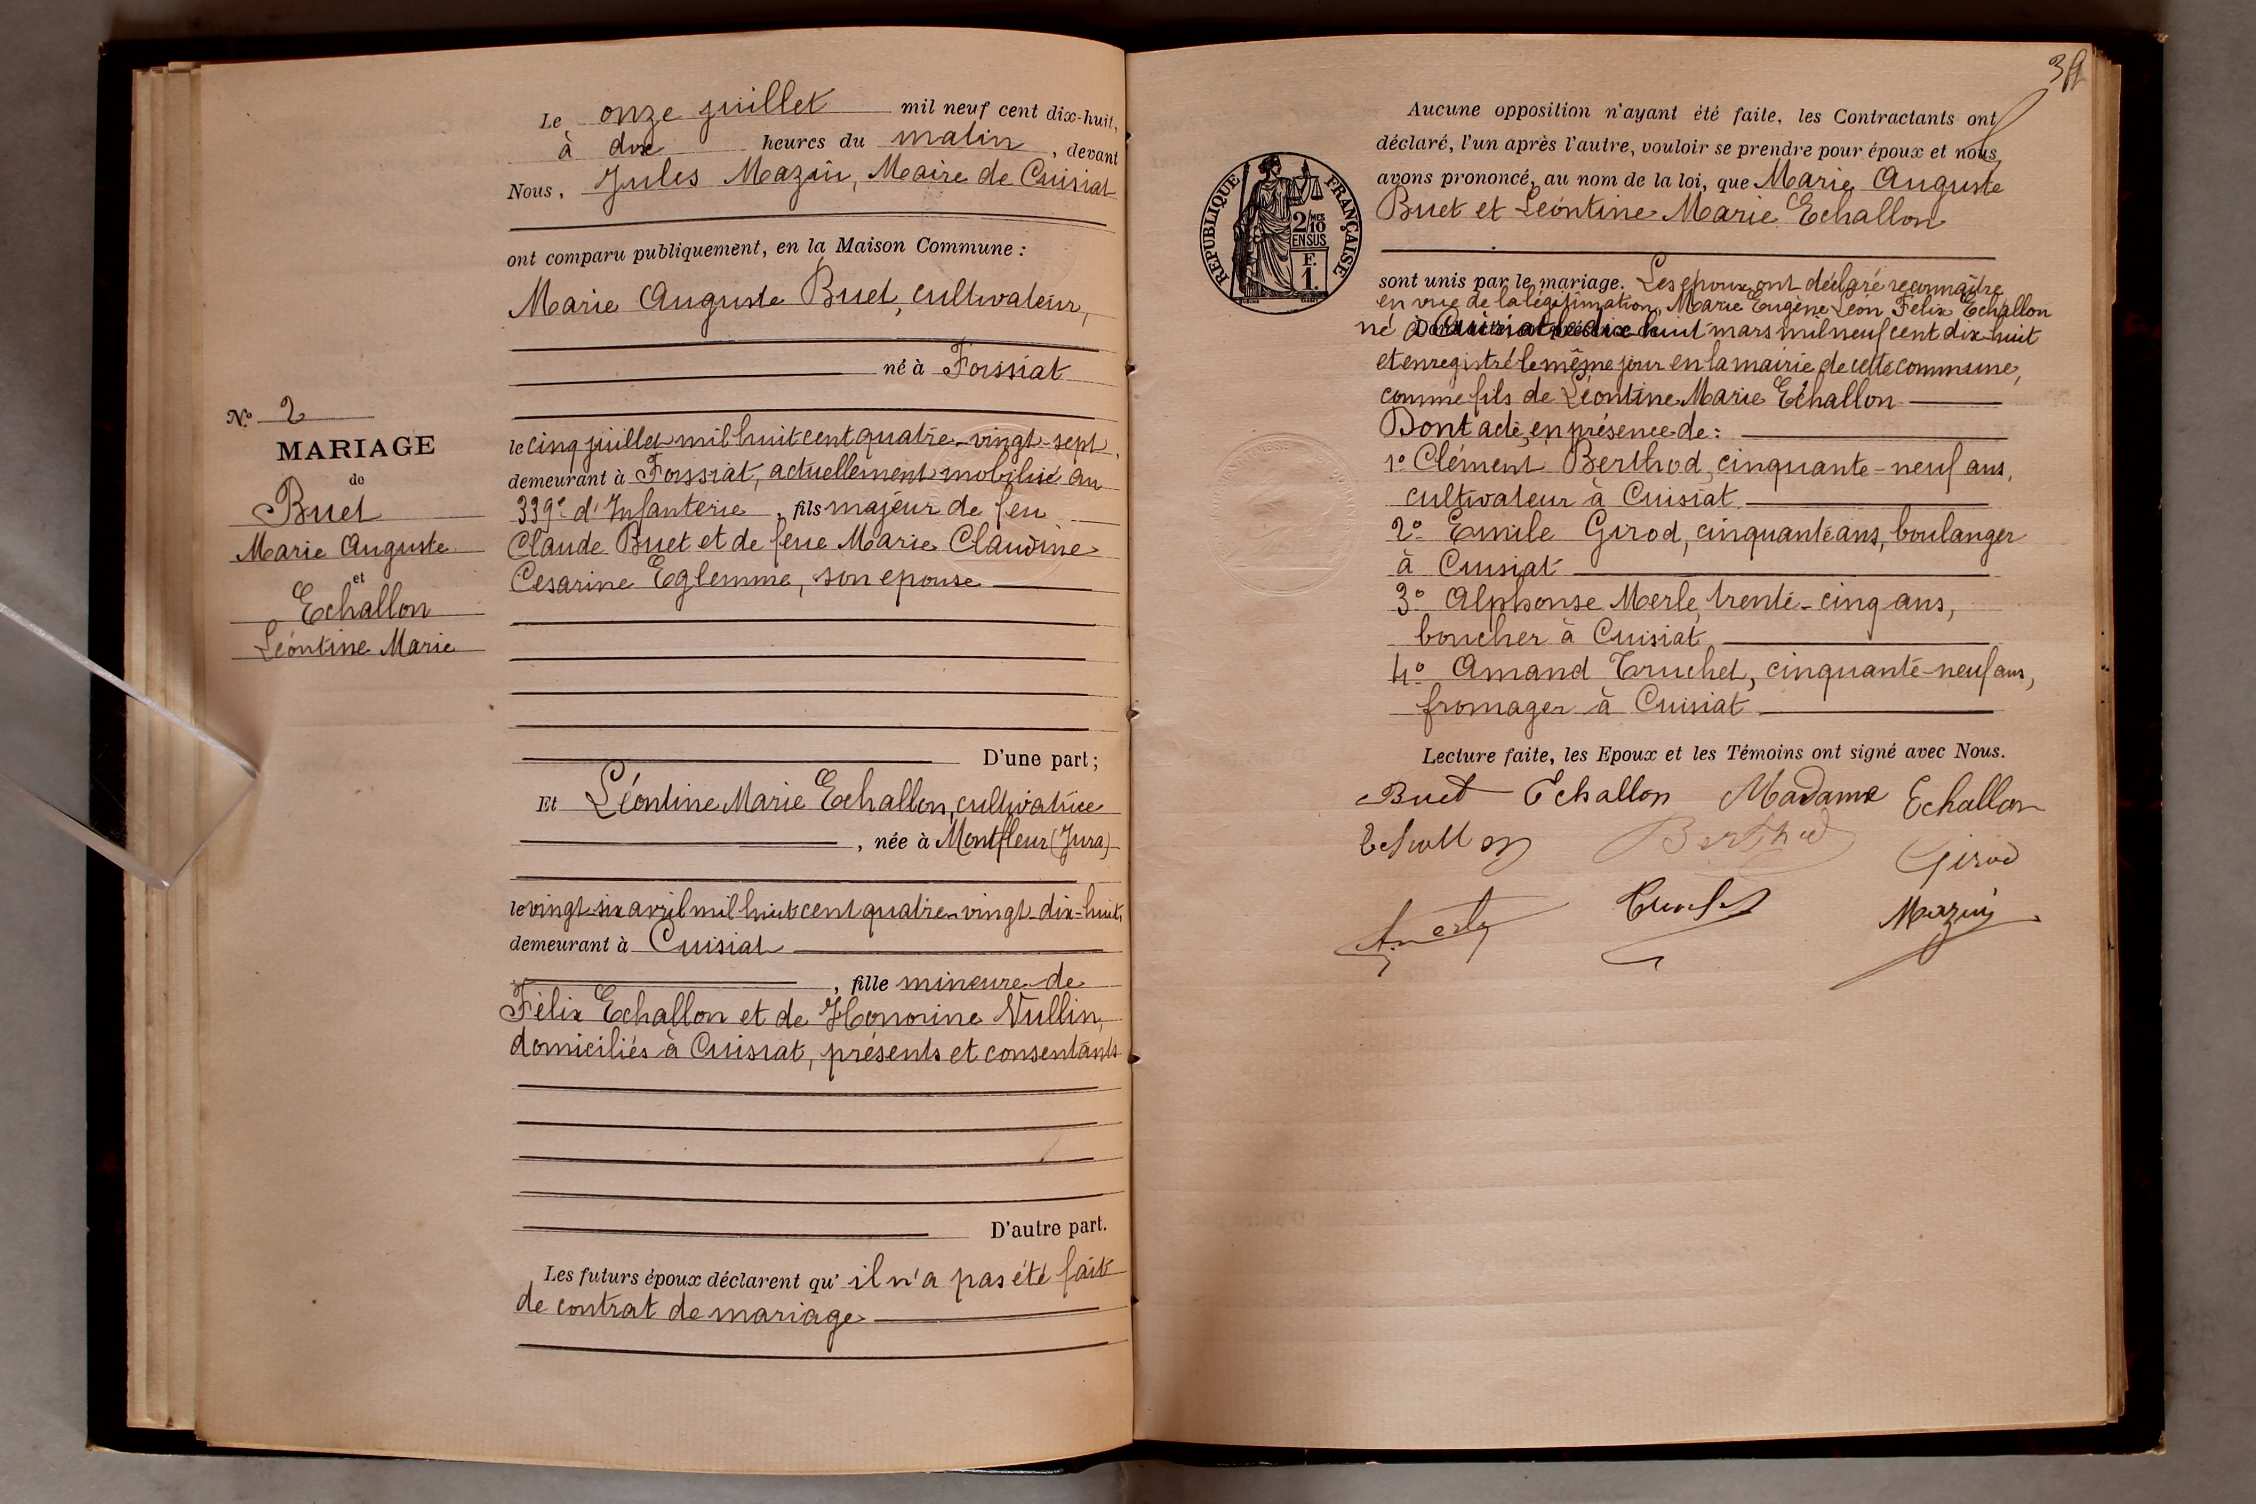 Le onze juillet mil neuf cent dix-huit,
à dix heures du matin, devant
Nous, Jules Mazuir, Maire de Cuisiat
ont comparu publiquement, en la Maison Commune :
Marie Auguste Buet, cultivateur,
né à Foissiat
le cinq juillet mil huit cent quatre-vingt-sept,
demeurant à Foissiat, actuellement mobilisé au
339e d'Infanterie, fils majeur de feu
Claude Buet et de feue Marie Claudine
Cesarine Eglemme, son epouse
D'une part ;
Et Léontine Marie Echallon, cultivatrice
, née à Montfleur (Jura)
le vingt-six avril mil huit cent quatre-vingt-dix-huit,
demeurant à Cuisiat
, fille mineure de
Félix Echallon et de Honorine Vullin,
domiciliés à Cuisiat, présents et consentants
D'autre part.
Les futurs époux déclarent qu'il n'a pas été fait
de contrat de mariage
No 2
MARIAGE
de
Buet
Marie Auguste
et
Echallon
Léontine Marie
Aucune opposition n'ayant été faite, les Contractants ont
déclaré, l'un après l'autre, vouloir se prendre pour époux et nous
avons prononcé, au nom de la loi, que Marie Auguste
Buet et Léontine Marie Echallon
sont unis par le mariage. Les époux ont déclaré reconnaître
en vue de la légitimation, Marie Eugène Léon Félix Echallon
né à Cuisiat le dix huit mars mil neuf cent dix-huit
et enregistré le même jour en la mairie de cette commune,
comme fils de Léontine Marie Echallon
Dont acte, en présence de :
1o Clément Berthod, cinquante-neuf ans,
cultivateur à Cuisiat
2o Emile Girod, cinquante ans, boulanger
à Cuisiat
3o Alphonse Merle, trente-cinq ans,
boucher à Cuisiat
4o Amand Truchet, cinquante-neuf ans,
fromager à Cuisiat
Lecture faite, les Epoux et les Témoins ont signé avec Nous.
Buet Echallon Madame Echallon
Echallon Berthod Girod
A. Merle Truchet Mazuir
REPUBLIQUE FRANÇAISE
2/10
EN SUS
F.
1.